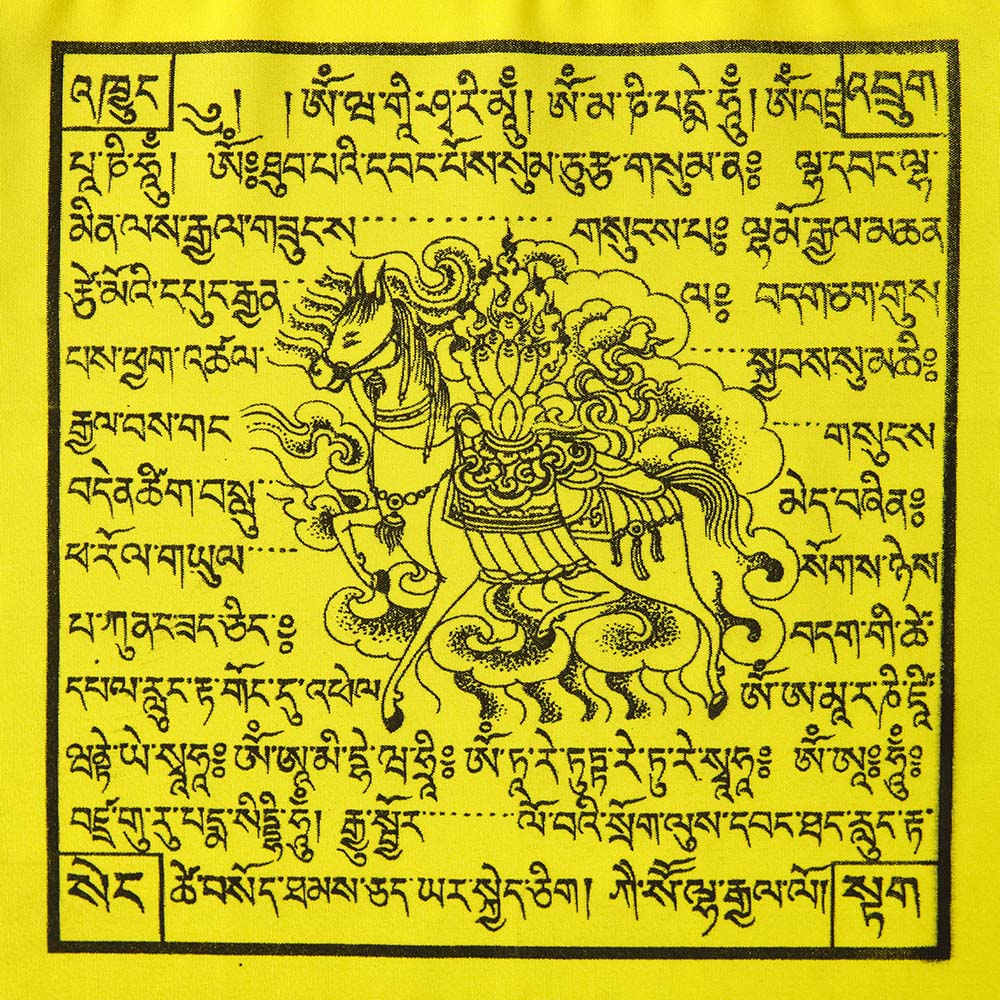 འཁྱུང ༄༅། །ཨོཾ་ཝ་གཱི་ཤྭ་རི་མུཾ། ཨོཾ་མ་ཎི་པདྨེ་ཧཱུྃ། ཨོཾ་བཛྲ་ འབྲུག
པཱ་ཎི་ཧཱུྃ། ཨོཾ༔ཐུབ་པའི་དབང་པོས་སུམ་ཅུ་རྩ་གསུམ་ན༔ ལྷ་དབང་ལྷ་
མིན་ལས་རྒྱལ་གཟུངས་ གསུངས་པ༔ ལྷ་མོ་རྒྱལ་མཚན
རྩེ་མོའི་དཔུང་རྒྱན་ ལ༔ བདག་ཅག་གུས
པས་ཕྱག་འཚོལ་ སྐྱབས་སུ་མཆི༔
རྒྱལ་བས་གང གསུངས
བདེན་ཚིག་བསླུ་ མེད་བཞིན༔
ཕ་རོལ་གཡུལ་ སོགས་ཉེས
པ་ཀུན་ཟད་ཅིང་༔ བདག་གི་ཚེ་
དཔལ་རླུང་རྟ་གོང་དུ་འཕེལ ཨོཾ་ཨ་མཱ་ར་ཎི་ཛཱི་
ཝནྟེ་ཡེ་སྭཱཧཱ༔ ཨོཾ་ཨཱ་མི་དྷེ་ཝ་ཧྲཱི༔ ཨོཾ་ཏཱ་རེ་ཏུཏྟ་རེ་ཏུ་རེ་སྭཱཧཱ༔ ཨོཾ་ཨཱ༔ཧཱུྃ༔
བཛྲ་གུ་རུ་པདྨ་སིདྡྷི་ཧཱུྃ། རྒྱུ་སྦྱོར་ ལོ་བའི་སྲོག་ལུས་དབང་ཐང་རླུང་རྟ་
སེང ཚེ་བསོད་ཐམས་ཅད་ཡར་སྐྱེད་ཅིག། ཀཻ་སོ་ལྷ་རྒྱལ་ལོ། སྟག